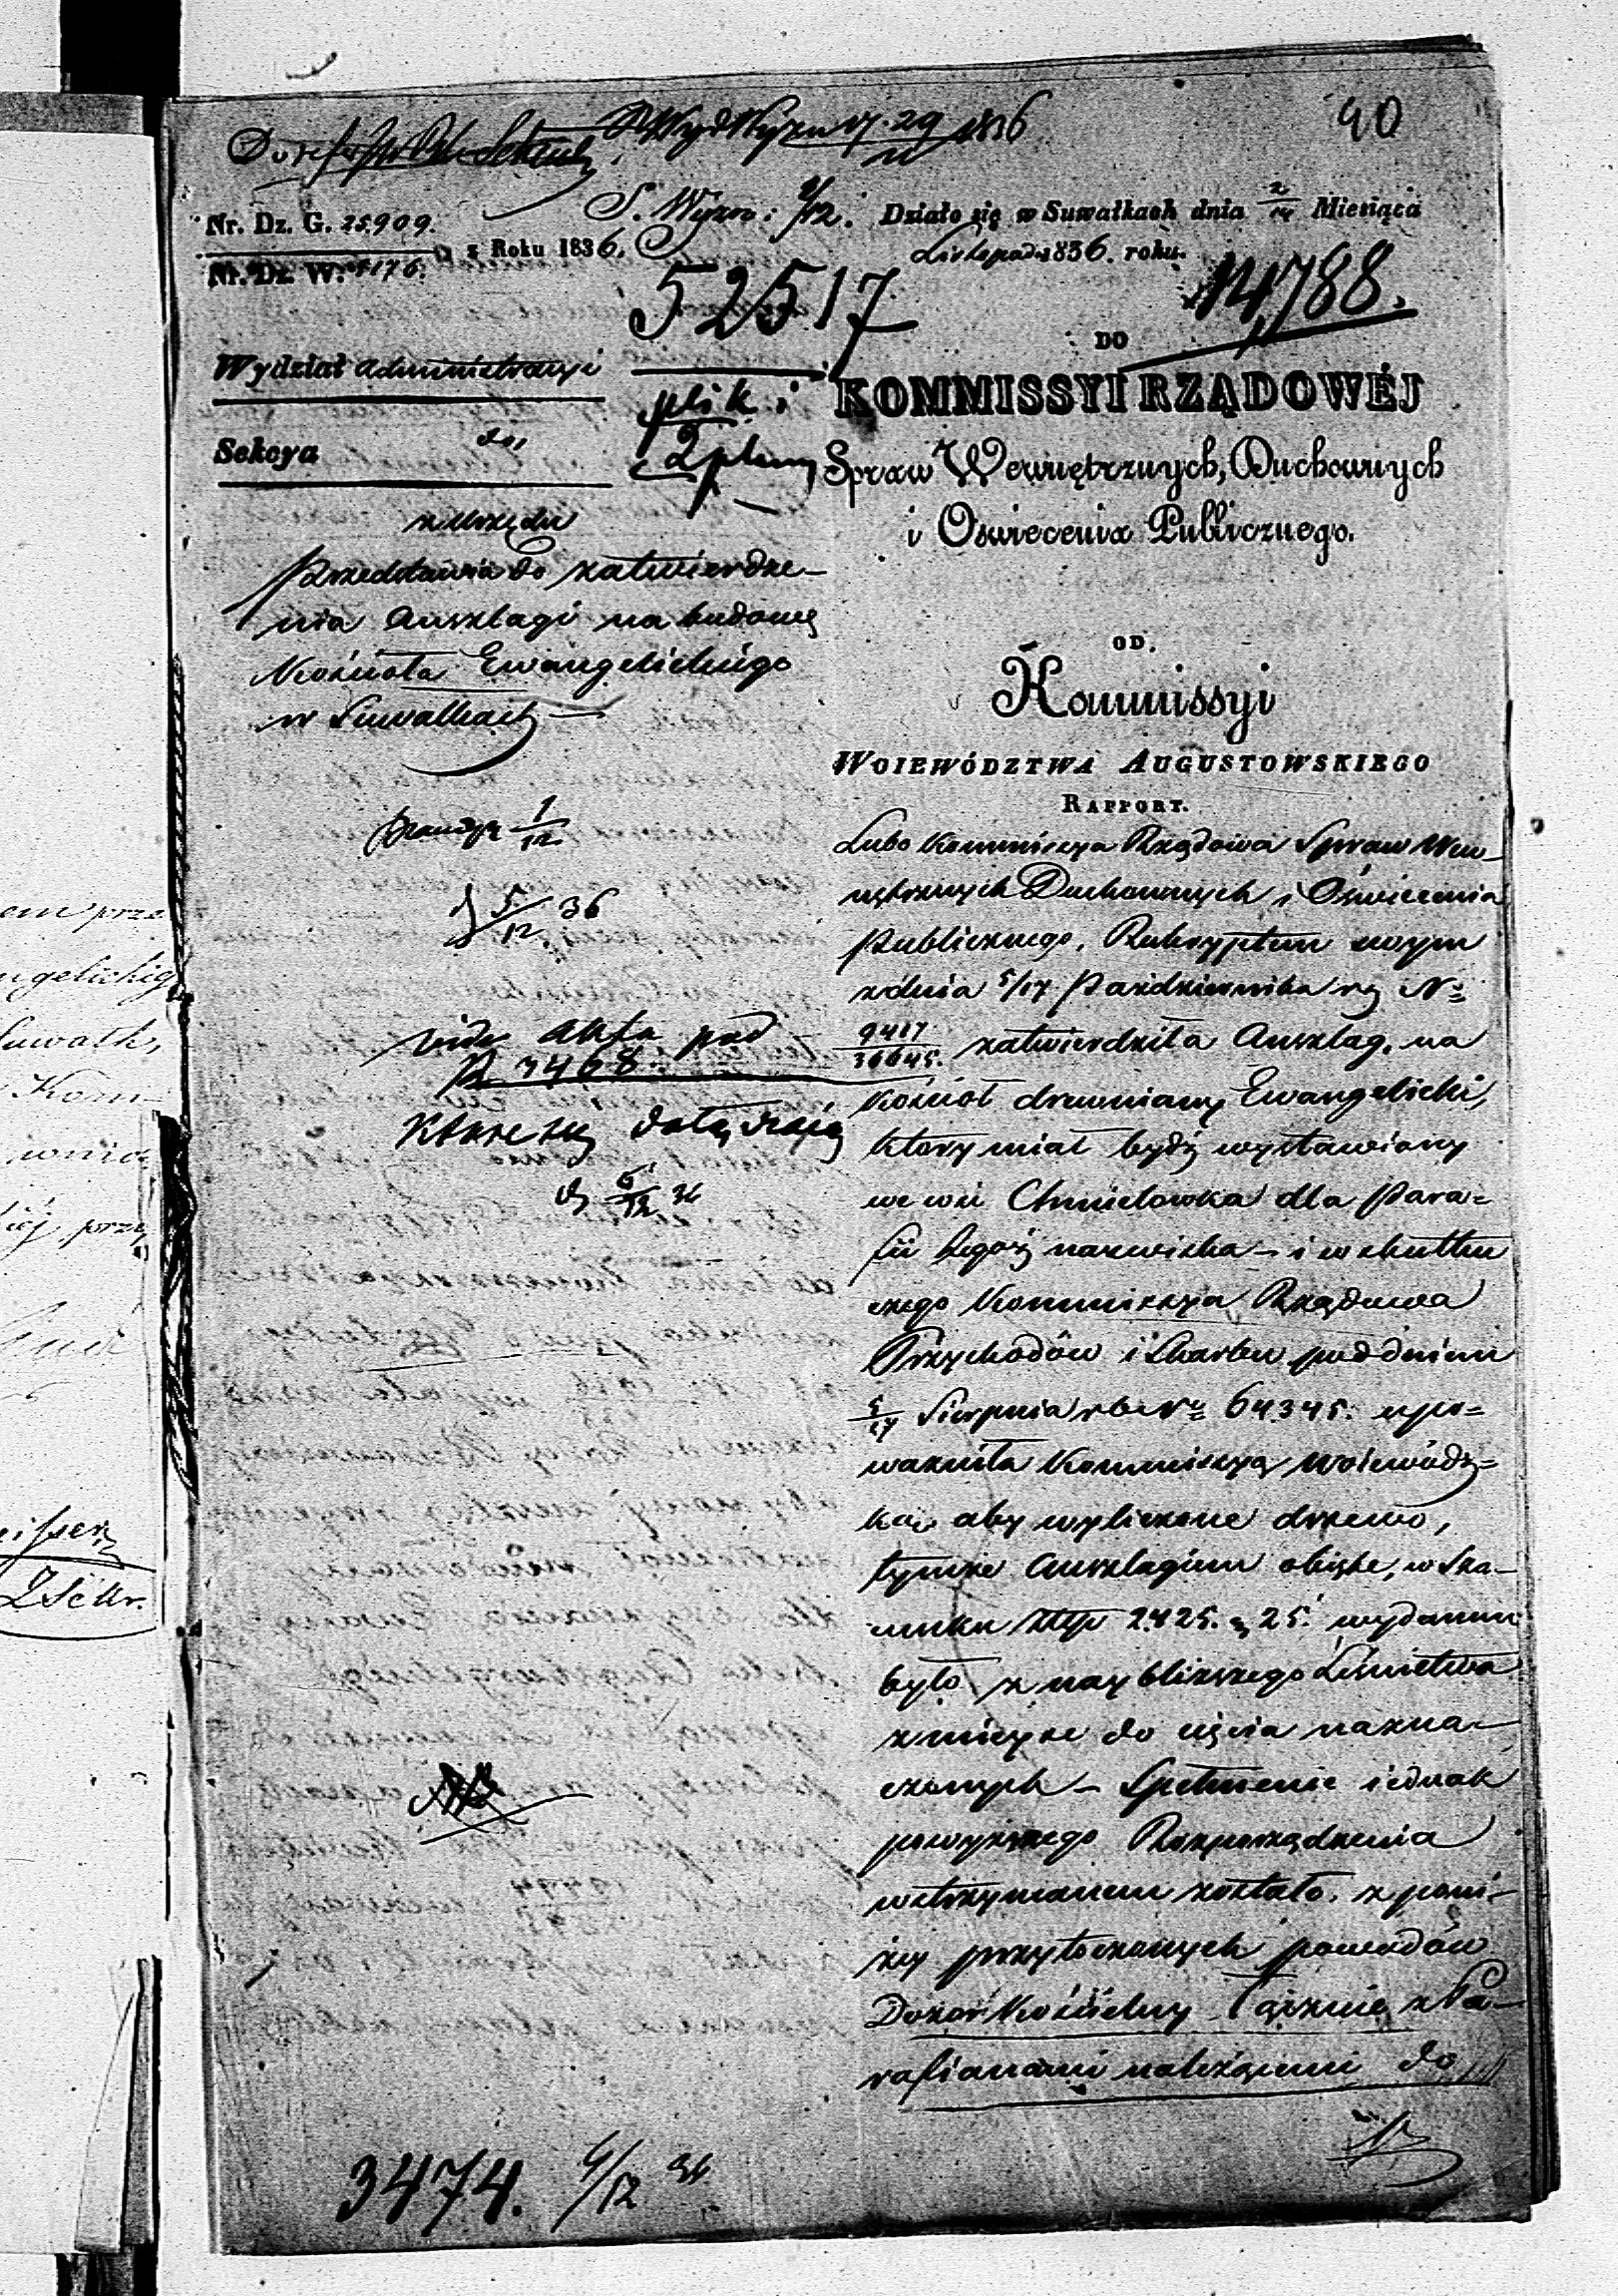 40
29/11 1836
Nr. Dz. G. 25909.
Nr. Dz. W. 5176.
z Roku 1836.
S. Wyzn: 2/12.
Działo się w Suwałkach dnia 2/14 Miesiąca
Listopada 1836. roku.
52517
14,788.
Wydział Administracyi
Sekcya do,
plik i
2 plany
DO
KOMMISSYI RZĄDOWÉJ
Spraw Wewnętrznych, Duchownych
i Oświecenia Publicznego.
z Urzędu
Przedstawia do zatwierdze-
nia Anszlagi na budowę
Kościoła Ewangelickiego
w Suwałkach
OD.
Kommissyi
WOIEWÓDZTWA AUGUSTOWSKIEGO
RAPPORT.
1/12
5/12 36
vide akta pod
N 3468.
które się dołączają
5/12 36
Lubo Kommissya Rządowa Spraw Wew-
nętrznych Duchownych i Oświecenia
Publicznego, Reskryptem swoym
z dnia 5/17 Października rz No
9417/36645. zatwierdziła Anszlag, na
Kościoł drewniany Ewangelicki,
ktory miał bydź wystawiony
we wsi Chmielowka dla Para=
fii tegoż nazwiska – i w skutku
czego Kommissya Rządowa
Przychodów i Skarbu pod dniem
5/17 Sierpnia rb No 64345. upo=
ważniła Kommissyą Woiewódz=
ką, aby wyliczone drzewo,
tymże Anszlagiem objęte, w Sza-
cunku Złtp 2425. g 25. wydanem
było z naybliższego Leśnictwa
z mieysc do cięcia nazna-
czonych – Spełnienie iednak
powyższego Rozporządzenia
wstrzymanem zostało, z poni-
żey przytoczonych powodów
Dozór Kościelny łącznie z Pa-
rafianami należącemi do
3474. 6/12 36